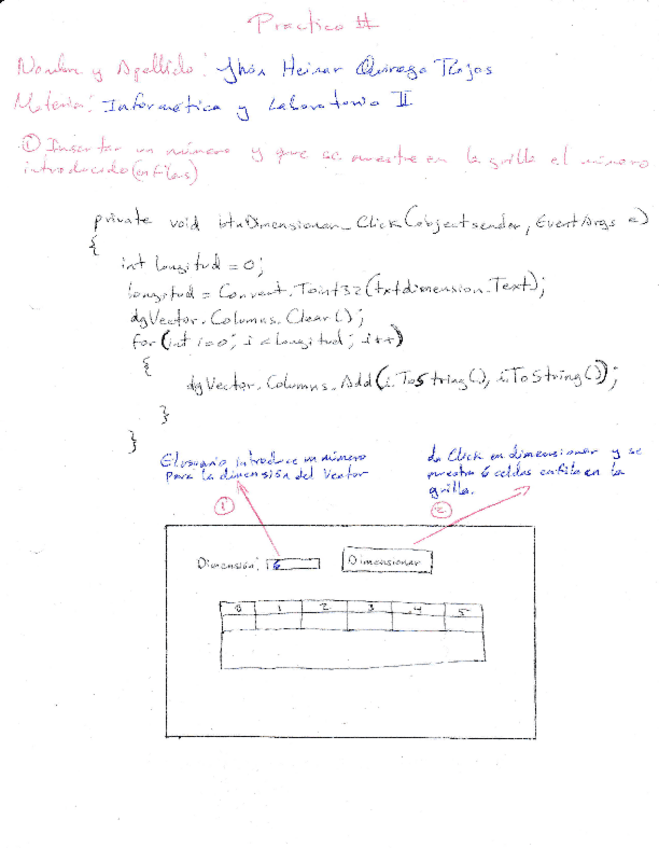 Practico #
Nombre y Apellido: Jhon Heinar Quiroga Rojos
Materia: Informática y Laboratorio II
① Insertar un número y que se muestre en la grilla el número
introducido (en filas)
private void btnDimensionar_Click(object sender, EventArgs e)
{
int longitud = 0;
longitud = Convert.ToInt32(txtdimension.Text);
dgVector.Columns.Clear();
for(int i=0; i<longitud; i++)
{
dgVector.Columns.Add(i.ToString(), i.ToString());
}
}
El usuario introduce un número
para la dimensión del Vector
da Click en dimensionar y se
muestra 6 celdas en fila en la
grilla.
① ②
Dimensión: 6 Dimensionar
0 1 2 3 4 5